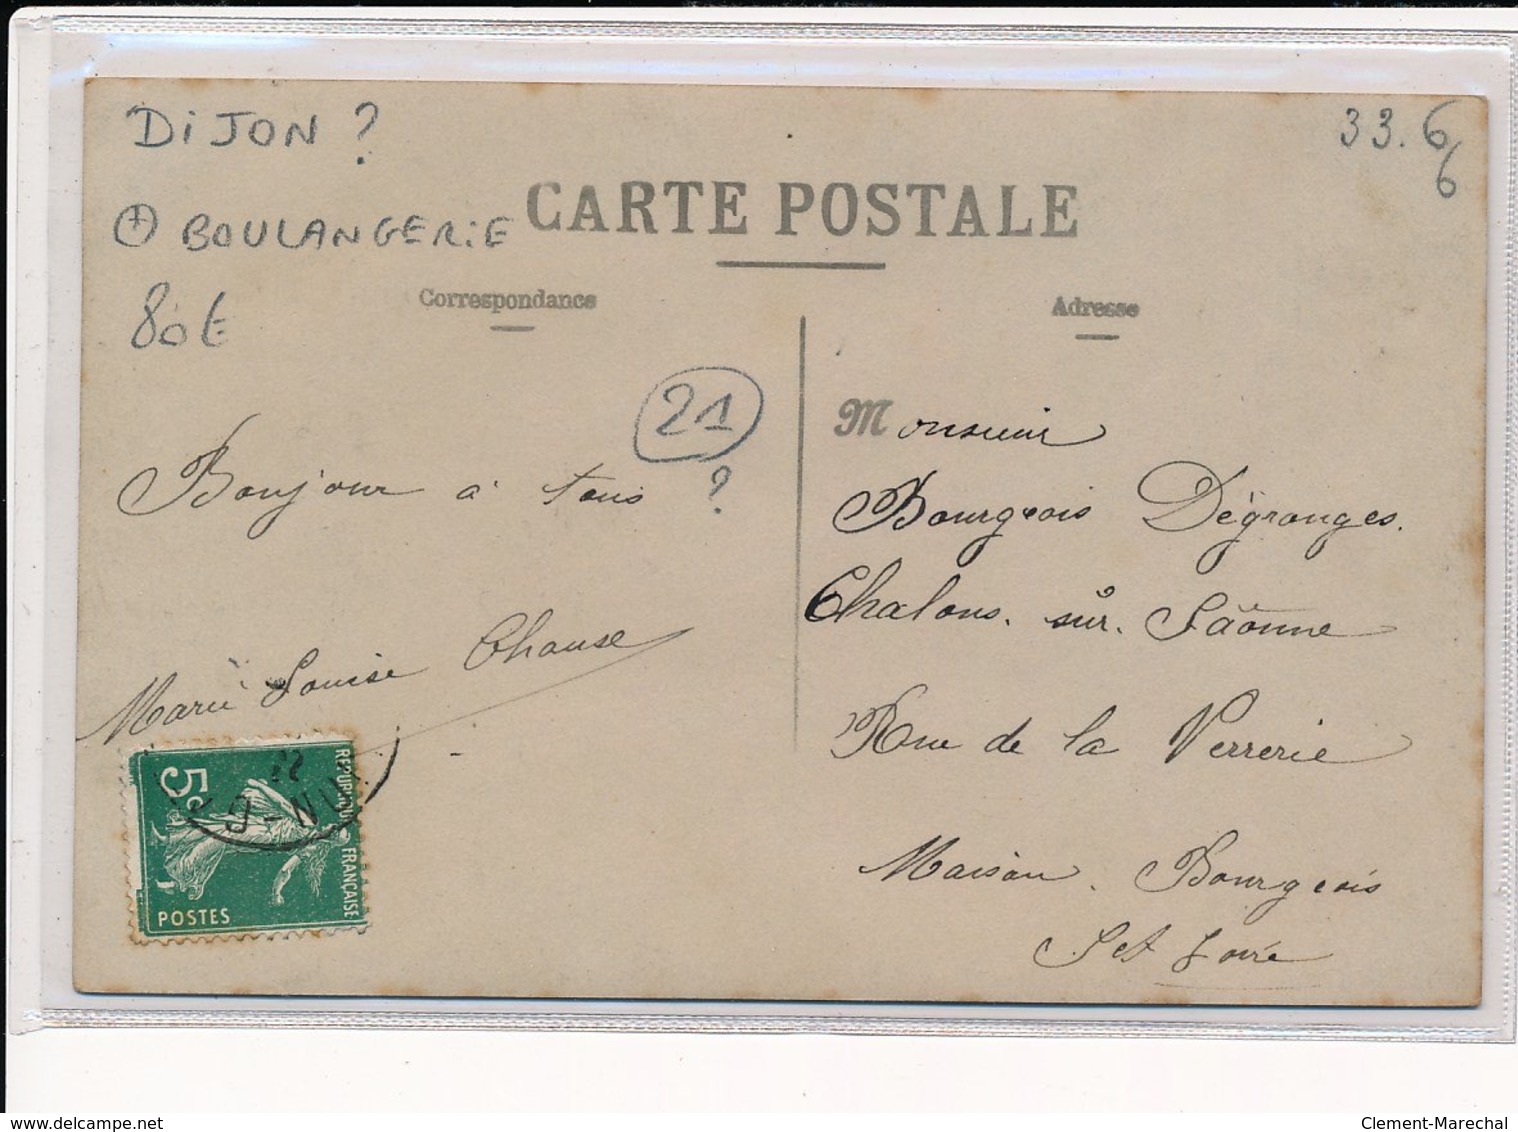 DiJON ?
33.6
6
⊕ BOULANGERiE
CARTE POSTALE
80€
Correspondance
Adresse
21
?
Bonjour à tous
Marie Louise Chause
Monsieur
Bourgeois Dégranges.
Chalons. sûr. Sâonne
Rue de la Verrerie
Maison. Bourgeois
S et Loire
5c
REPUBLIQUE FRANÇAISE
POSTES
22
delcampe.net
Clement-Marechal